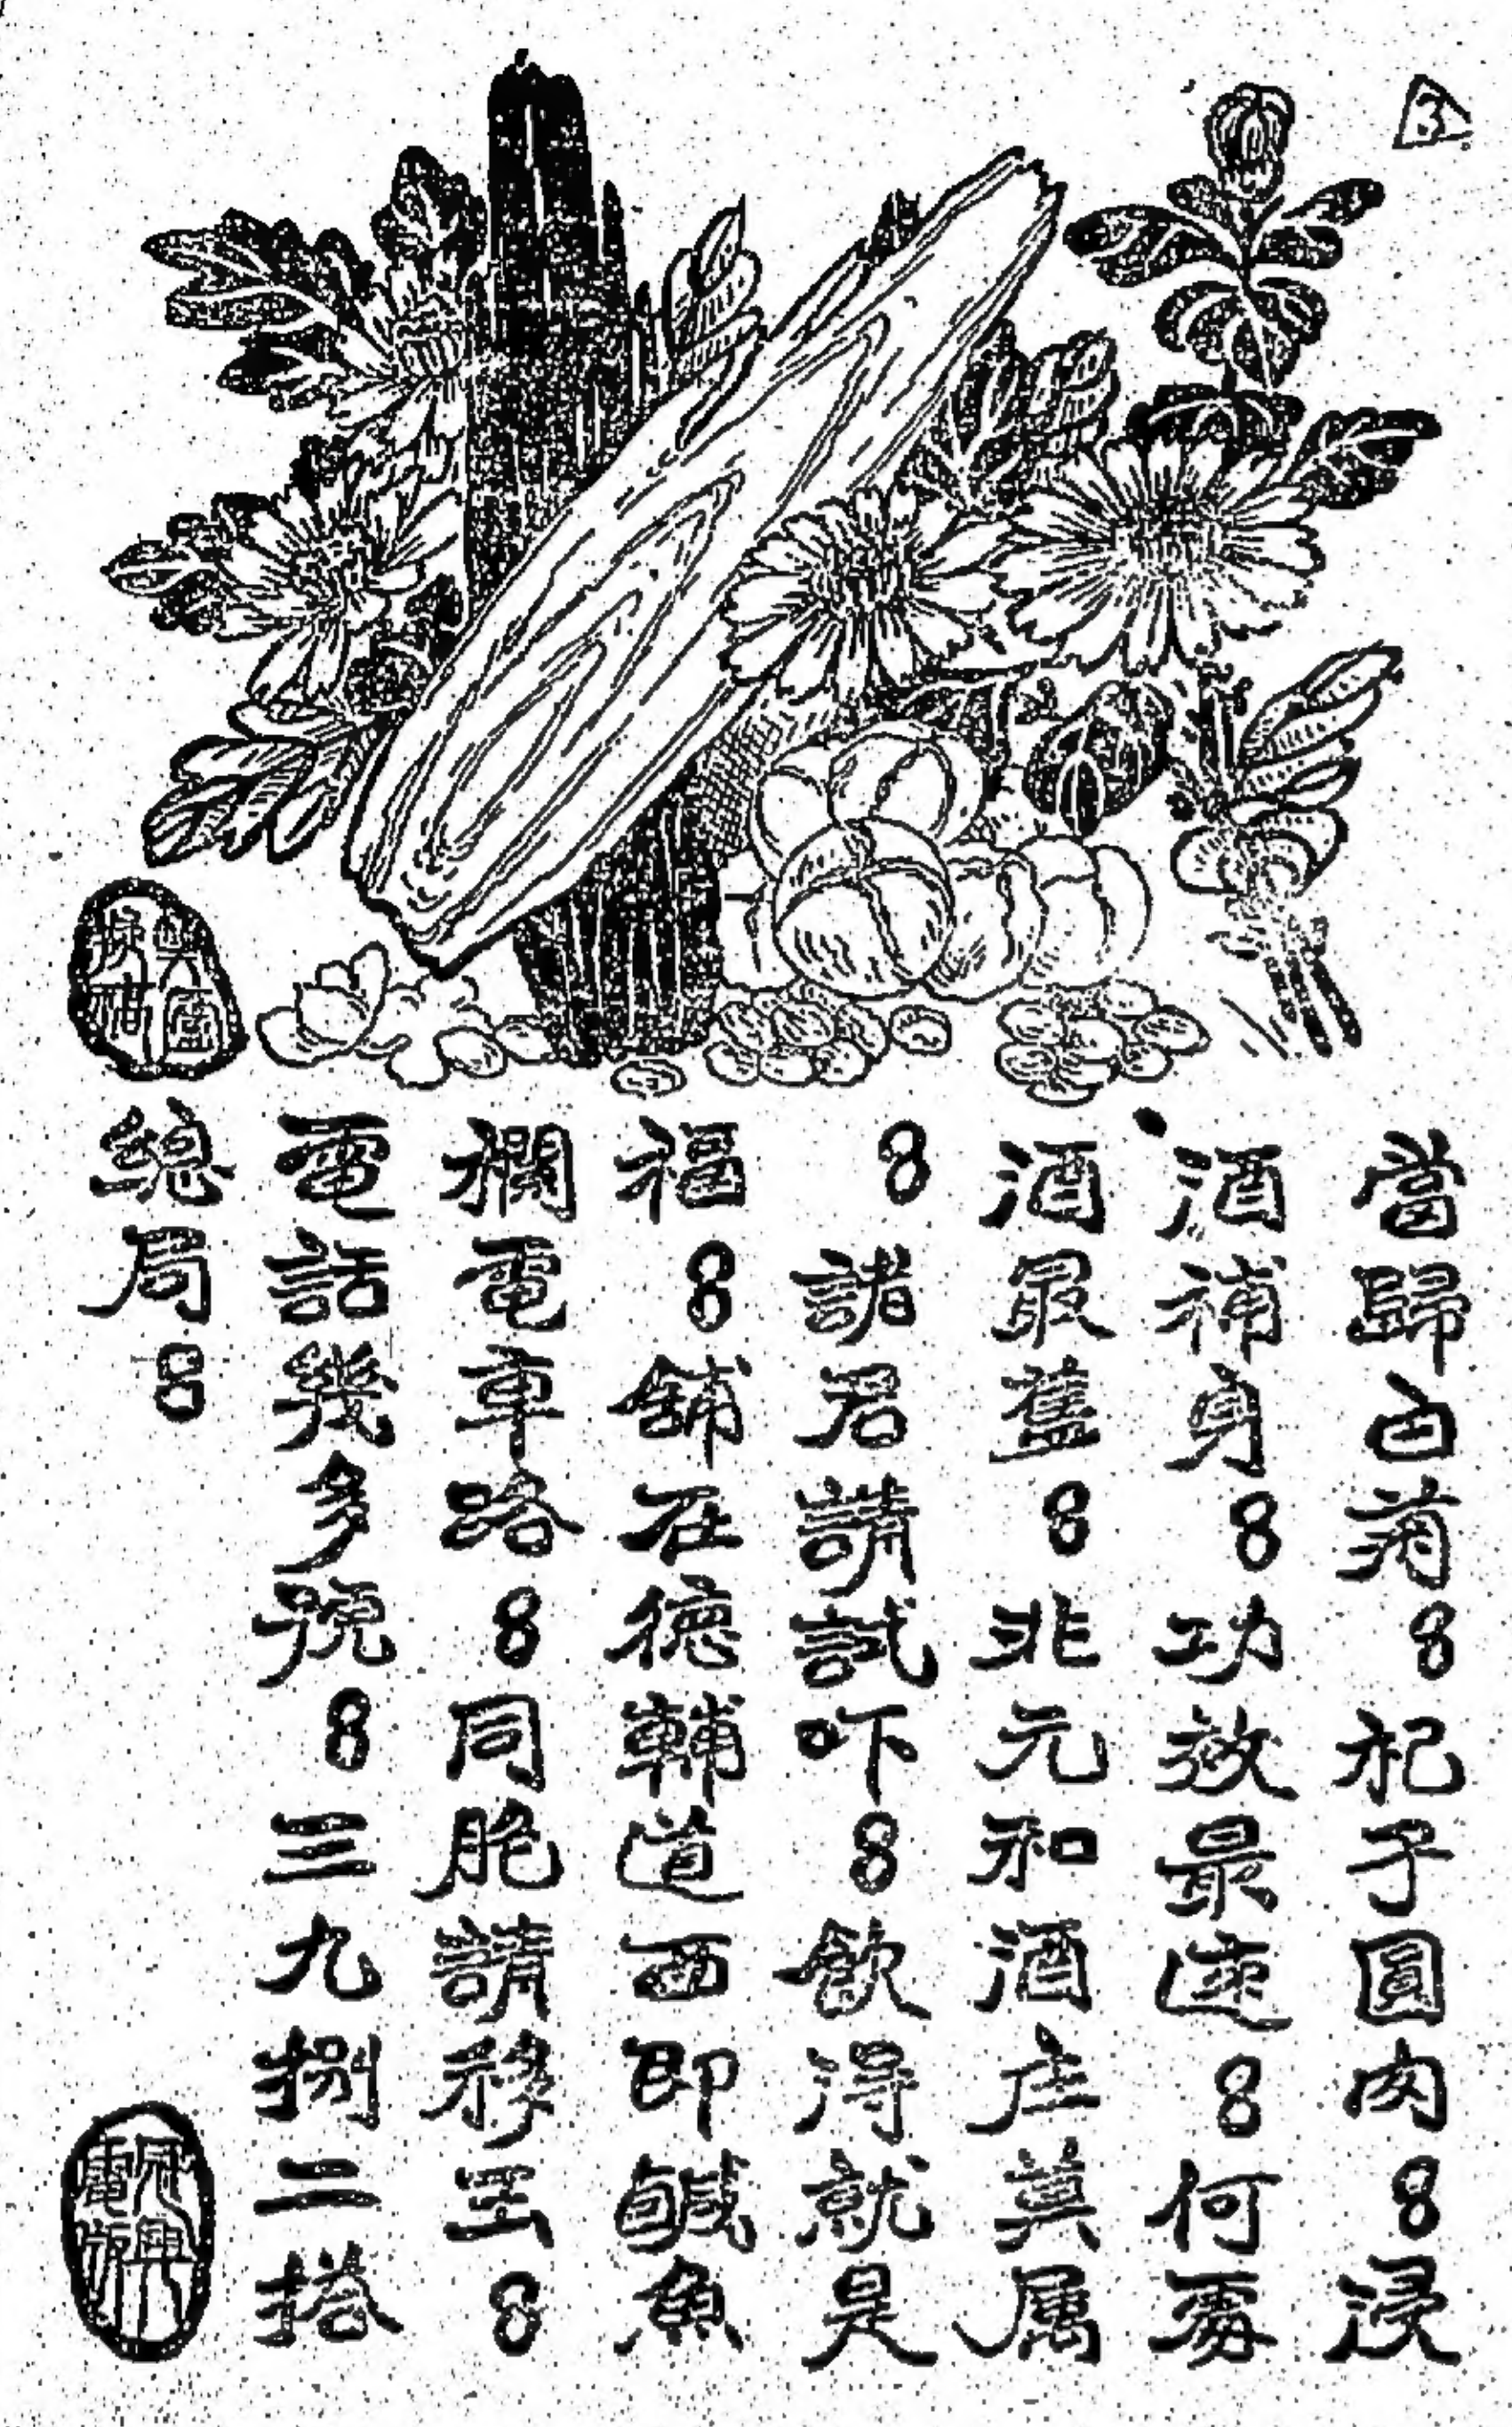 3
當歸白菊8杞子圓肉8浸
酒補身8功效最速8何處
酒最舊8非元和酒庄莫属
8諸君請試吓8飲得就是
福8舖在德輔道西即鹹魚
欄電車路8同胞請移玉8
電話幾多號8三九捌二搭
總局8